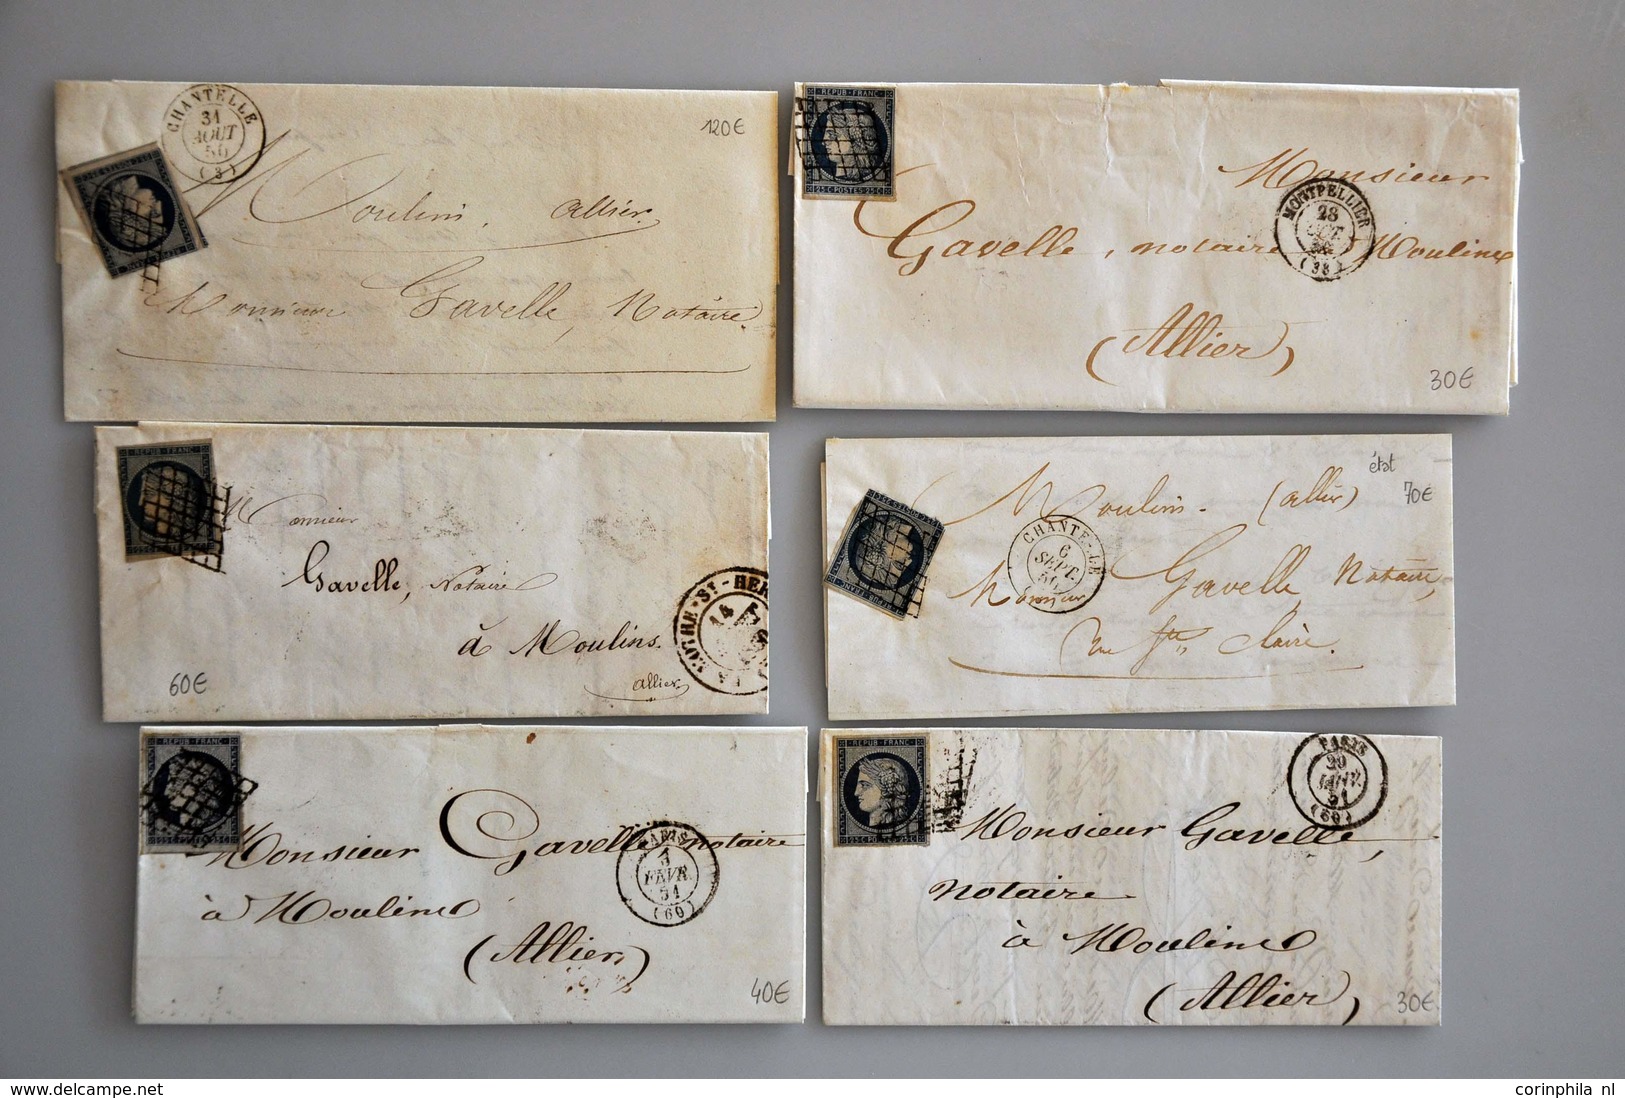 CHANTELLE
31
AOUT
50
(3)
120€
Moulins. allier.
Monsieur Gavelle, Notaire.
REPUB FRANC
25 C POSTES 25 C
Monsieur
MONTPELLIER
28
OCT.
(33)
Gavelle, notaire à Moulins
(Allier)
30€
REPUB FRANC
Monsieur
Gavelle, Notaire
à Moulins.
allier.
14
60€
état
70€
Moulins. (allier)
CHANTELLE
6
SEPT.
50
Monsieur Gavelle Notaire,
rue Ste Claire.
REPUB FRANC
Monsieur Gavelle notaire
à Moulins
(Allier)
PARIS
FEVR.
51
(60)
40€
REPUB FRANC
25 C POSTES 25 C
PARIS
29
JANV.
51
(60)
Monsieur Gavelle,
notaire
à Moulins
(Allier)
30€
www.delcampe.net
corinphila nl